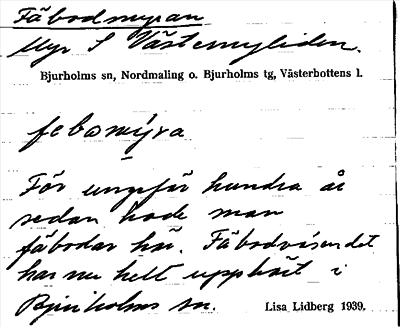 Fäbodmyran
Myr S Västermyrliden.
Bjurholms sn, Nordmaling o. Bjurholms tg, Västerbottens l.
febomýra
För ungefär hundra år
sedan hade man
fäbodar här. Fäbodväsendet
har nu helt upphört i
Bjurholms sn.
Lisa Lidberg 1939.